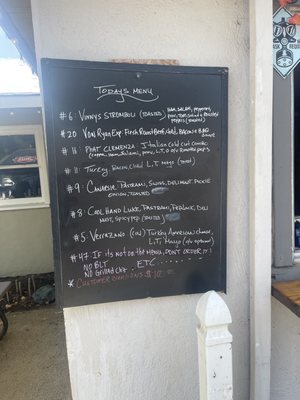 TODAY'S MENU
#6: VINNY'S STROMBOLI (TOASTED) HAM, SALAMI, pepperoni,
prov, Tom. Salad & Roasted
peppers (toasted)
#20 VON RYAN EXP. Fresh Roast Beef, Ched, BACON & BBQ
#11: PHAT CLEMENZA: Italian Cold Cut Combo
(Capp., Ham, Salami, prov, L.T. O o/v Roasted pep's
#11: Turkey, Bacon, Ched L.T. mayo (toast)
#9: CANARSIE, PASTRAMI, SWISS, DELI MUST, PICKLE
ONION, TOASTED
#8: COOL HAND LUKE, PASTRAMI, PEPJACK, DELI
MUST, SPICY PEP (TOASTED)
#5: VERAZANO (CW) TURKEY, AMERICAN CHEESE,
L.T. MAYO (o/v OPTIONAL)
#47 IF it's NOT ON THE MENU, DON'T ORDER IT!
NO BLT
NO Grilled Chz. ETC
* CUSTOMER $10